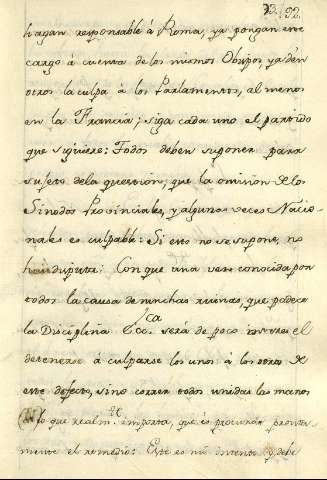 93. 92.
hagan responsable á Roma, ya pongan este
cargo á cuenta de los mismos Obispos, ya dén
otros la culpa á los Parlamentos, al menos
en la Francia; siga cada uno el partido
que siguiere: Todos deben suponer para
sujeto dela question, que la omision de los
Sinodos Provinciales, y algunas veces Nacio-
nales es culpable: Si esto no se supone, no
hai disputa. Con que una vez conocida por
todos la causa de muchas ruinas, que padece
la Disciplina Ecc.ca será de poco interes el
detenerse á culparse los unos á los otros de
este defecto, sino correr todos unidas las manos
lo que realm.te importa, que es procurar pronta-
mente el remedio: Este es mi intento, y debe